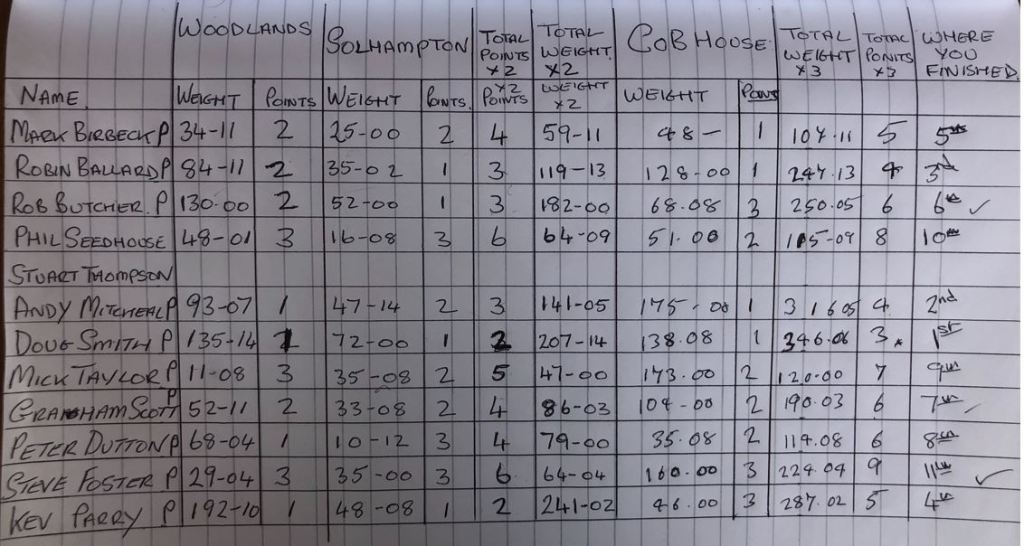 WOODLANDS SOLHAMPTON TOTAL POINTS ×2 TOTAL WEIGHT ×2 COB HOUSE TOTAL WEIGHT ×3 TOTAL PONITS ×3 WHERE YOU FINISHED
NAME. WEIGHT POINTS WEIGHT POINTS. ×2 POINTS WEIGHT ×2 WEIGHT
MARK BIRBECK P 34-11 2 25-00 2 4 59-11 48- 1 107.11 5
ROBIN BALLARD P 84-11 2 35-02 1 3 119-13 128-00 1 247.13 4 3rd
ROB BUTCHER. P 130.00 2 52-00 1 3 182-00 68.08 3 250.05 6 6th ✓
PHIL SEEDHOUSE 48-01 3 16-08 3 6 64-09 51.00 2 115-09 8 10th
STUART THOMPSON
ANDY MITCHEAL P 93-07 1 47-14 2 3 141-05 175-00 1 316 05 4. 2nd
DOUG SMITH P 135-14 1 72-00 1 2 207-14 138.08 1 346.06 3. 1st
MICK TAYLOR P 11-08 3 35-08 2 5 47-00 173.00 2 120-00 7 9th
SCOTT P 52-11 2 33-08 2 4 86-03 104-00 2 190.03 6 7th
PETER DUTTON P 68-04 1 10-12 3 4 79-00 35.08 2 114.08 6 8th
STEVE FOSTER P 29-04 3 35-00 3 6 64-04 160.00 3 224.04 9 11th ✓
KEV PARRY P 192-10 1 48-08 1 2 241-02 46.00 3 287.02 5 4th